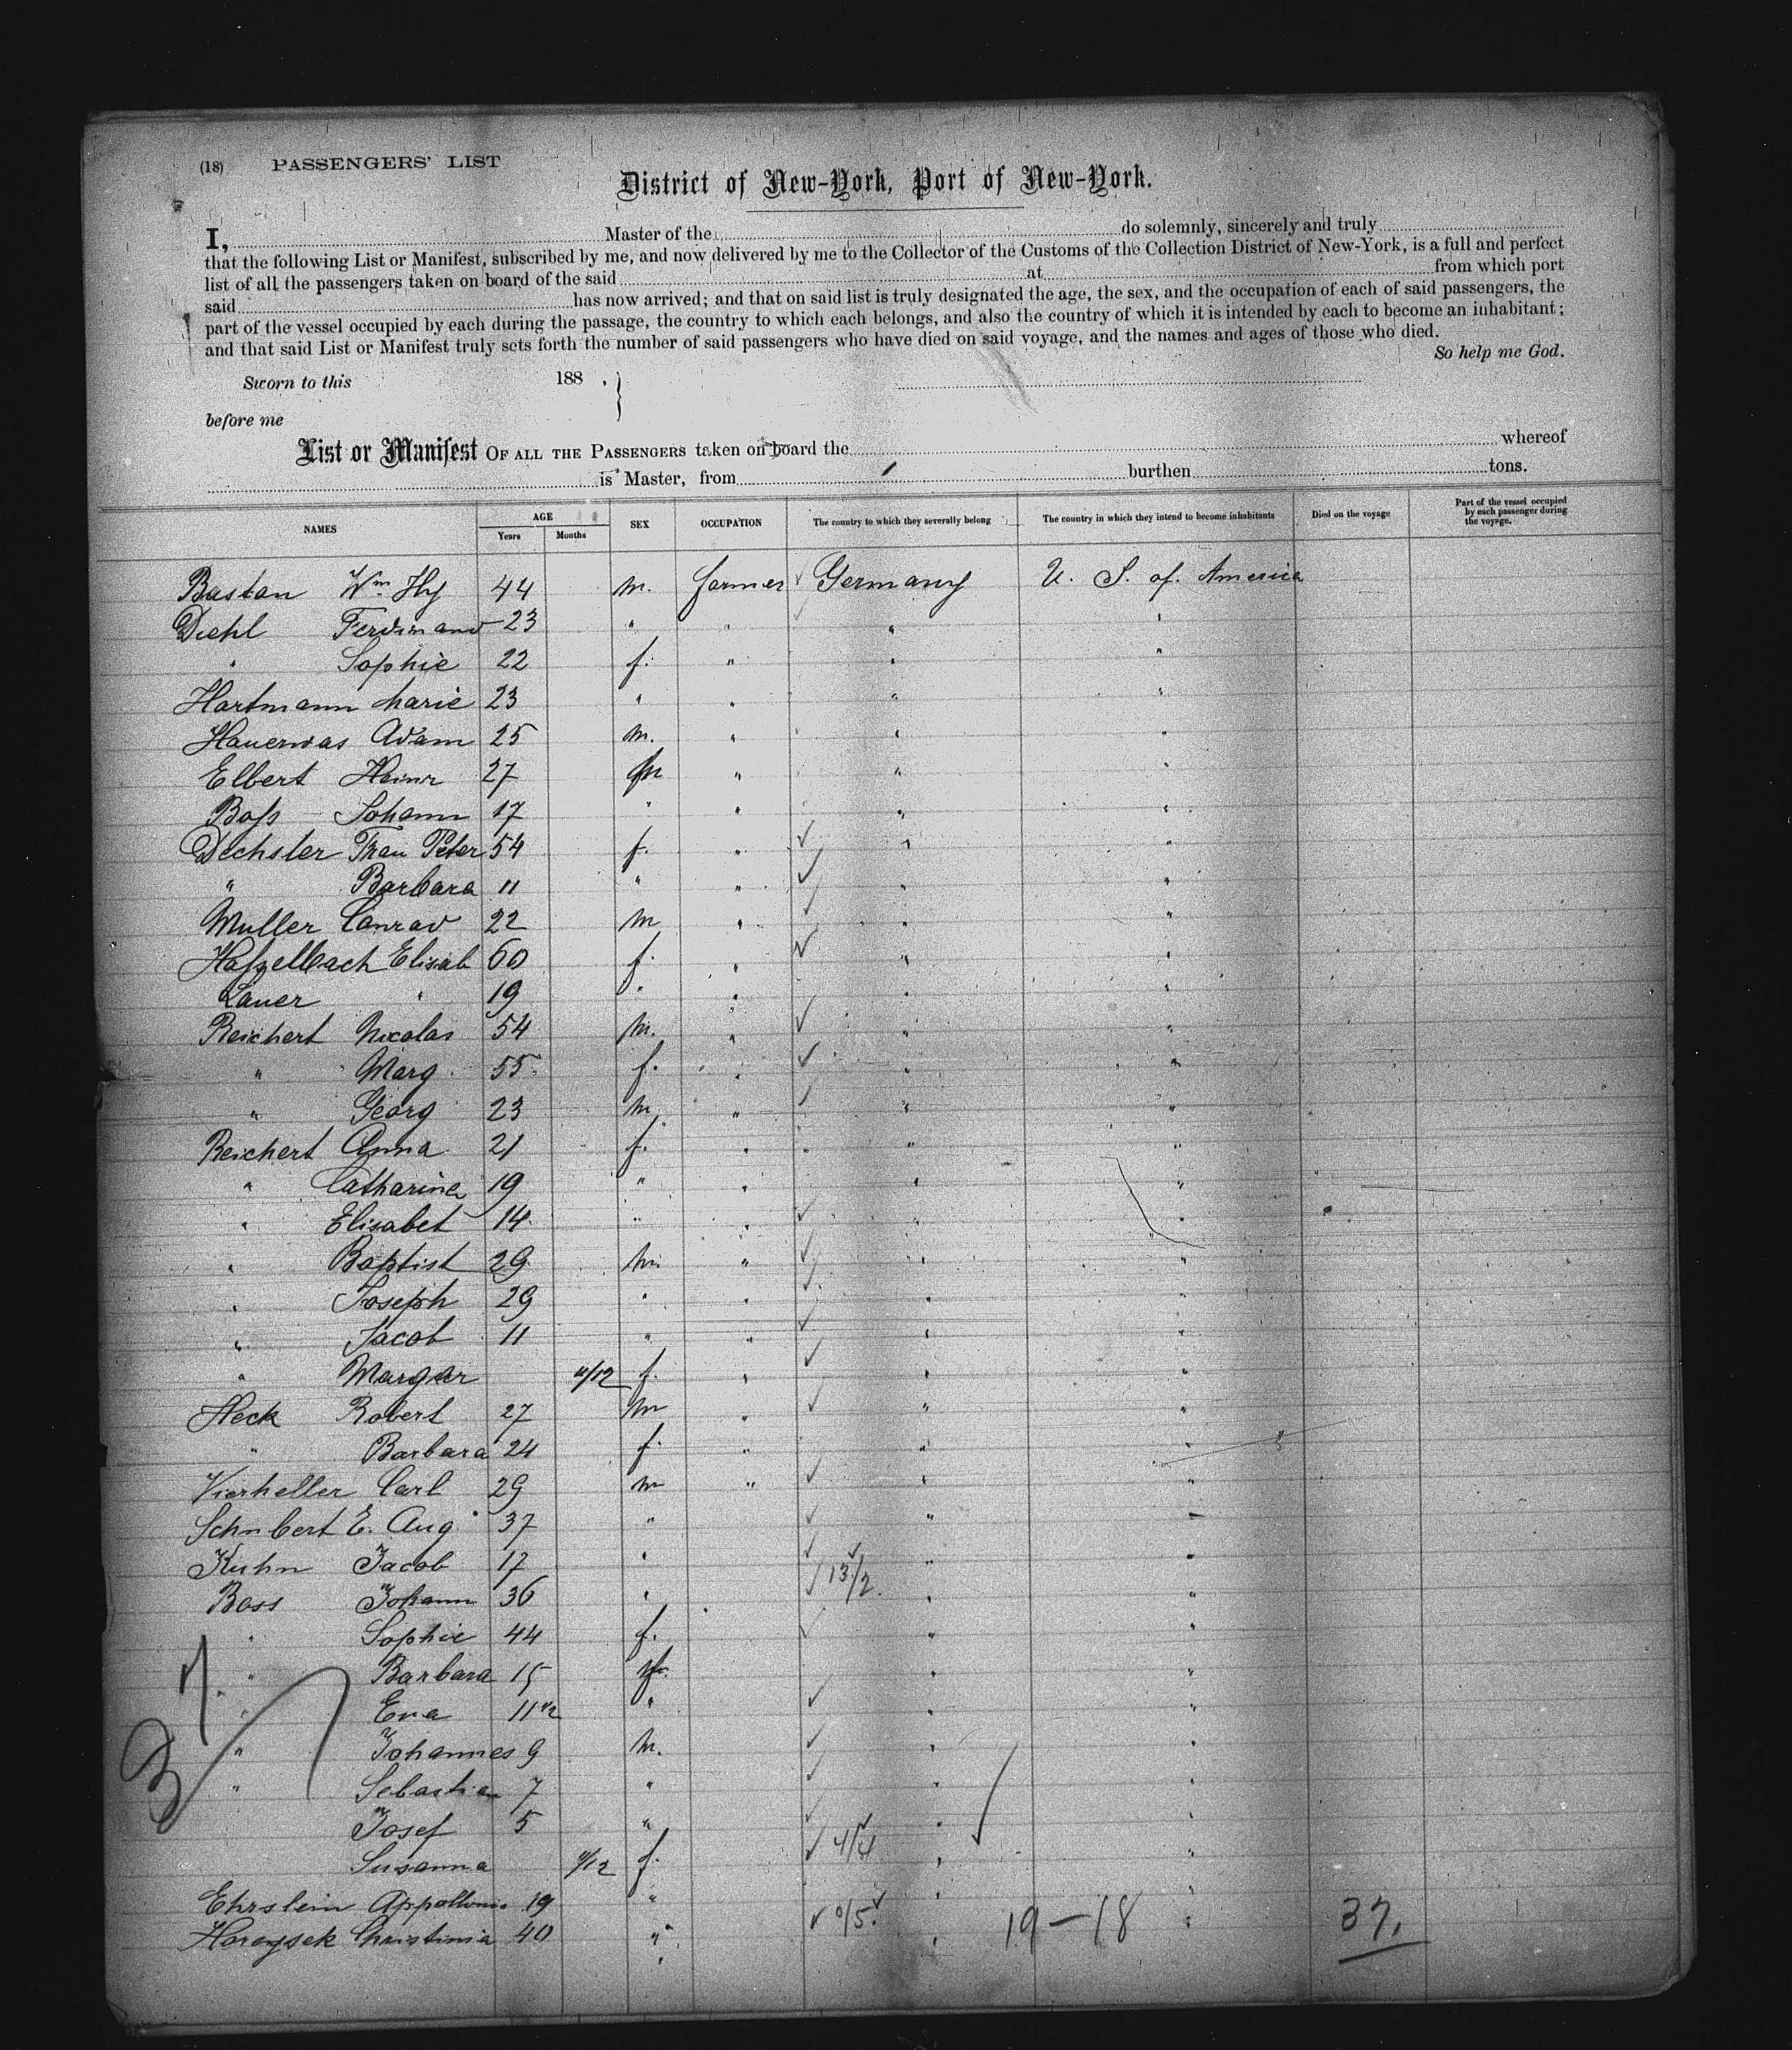 (18) PASSENGERS' LIST
District of New-York, Port of New-York.
I, Master of the do solemnly, sincerely and truly
that the following List or Manifest, subscribed by me, and now delivered by me to the Collector of the Customs of the Collection District of New-York, is a full and perfect
list of all the passengers taken on board of the said at from which port
said has now arrived; and that on said list is truly designated the age, the sex, and the occupation of each of said passengers, the
part of the vessel occupied by each during the passage, the country to which each belongs, and also the country of which it is intended by each to become an inhabitant;
and that said List or Manifest truly sets forth the number of said passengers who have died on said voyage, and the names and ages of those who died.
So help me God.
Sworn to this 188 .
before me
List or Manifest OF ALL THE PASSENGERS taken on board the whereof
is Master, from burthen tons.
NAMES AGE Years Months SEX OCCUPATION The country to which they severally belong The country in which they intend to become inhabitants Died on the voyage Part of the vessel occupied by each passenger during the voyage.
Bastan Wm Hy 44 m. farmer Germany U. S. of America
Diehl Ferdinand 23 " " " "
" Sophie 22 f. " " "
Hartmann Marie 23 " " " "
Hauerwas Adam 25 m. " " "
Elbert Heinr 27 m " " "
Boss Johann 17 " " " "
Dechsler Frau Peter 54 f. " " "
" Barbara 11 " " " "
Muller Conrad 22 m " " "
Elisab 60 f. " " "
Lauer " 19 " " " "
Reichert Nicolas 54 m. " " "
" Marg. 55 f. " " "
" Georg 23 m " " "
Reichert Anna 21 f. " " "
" Catharine 19 " " " "
" Elisabet 14 " " " "
" Baptist 29 m. " " "
" Joseph 29 " " " "
" Jacob 11 " " " "
" Margar 11/12 f. " " "
Heck Robert 27 m " " "
" Barbara 24 f. " " "
Vierheller Carl 29 m " " "
Schubert E. Aug 37 " " "
Kuhn Jacob 17 " " "
Boss Johann 36 " 13/2 " "
" Sophie 44 f. " "
" Barbara 15 f. " "
" Eva 11 1/2 " " "
" Johannes 9 m. " "
" Sebastian 7 " " "
Josef 5 " " "
Susanna 11/12 f. 4/4 " "
Ehrslein Appollonia 19 " " "
Christinia 40 " 0/5. " 19-18 " 37.
37